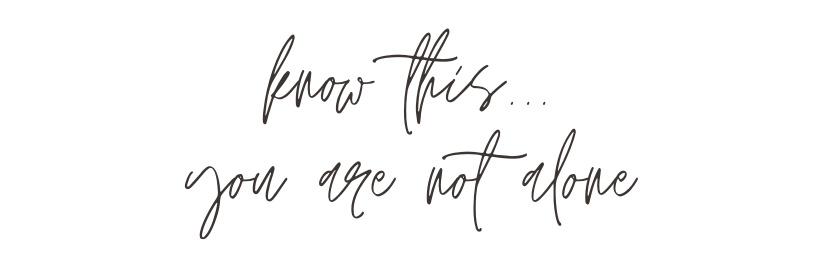 know this...
you are not alone